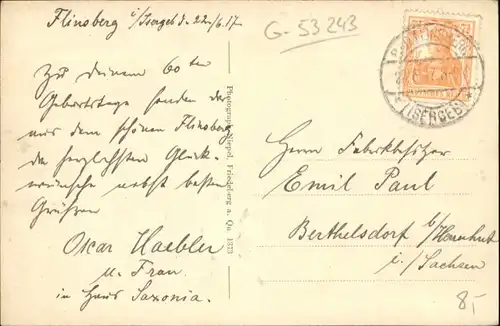 Flinsberg i/Isergeb. d. 22/6.17
G-53243
Zu deinem 60ten
Geburtstage senden dir
wir aus dem schönen Flinsberg
die herzlichsten Glück-
wünsche nebst besten
Grüßen
Oskar Haebler
u. Frau
in Haus Saxonia.
Photograph Niepel, Friedeberg a. Qu. 1373
(ISERGEB)
Herrn Fabrikbesitzer
Emil Paul
Berthelsdorf b/Herrnhut
i./Sachsen
8,-